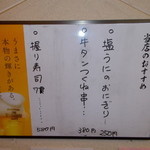 当店のおすすめ
・塩うにのおにぎり…
250円
・牛タンつくね串…
380円
・握り寿司7貫……
うまさに、
本物の輝きがある